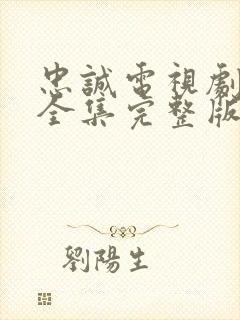 忠誠電視劇
全集完整版
劉陽生